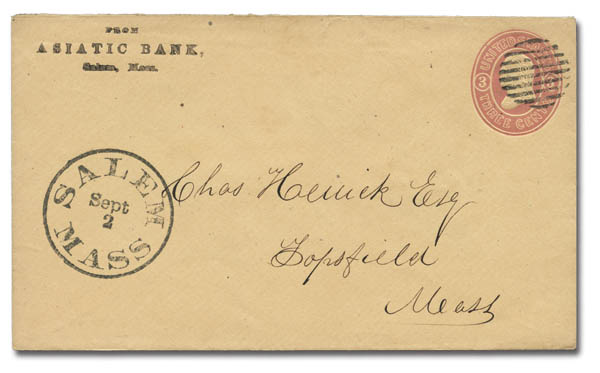 FROM
ASIATIC BANK,
Salem, Mass.
UNITED
3
THREE CEN
SALEM
Sept
2
MASS
Chas Herrick Esq
Topsfield
Mass